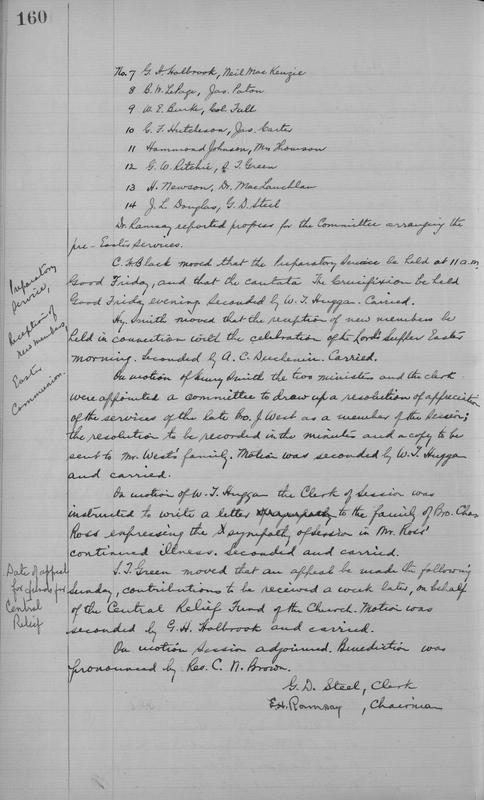 160
No. 7 G. H. Holbrook, Neil MacKenzie
8 B. W. LePage, Jas. Paton
9 W. E. Burke, Col. Full
10 G. F. Hutcheson, Jas. Carter
11 Hammond Johnson, Wm Thomson
12 G. W. Ritchie, S. T. Green
13 H. Newson, Dr. MacLauchlan
14 J. L. Douglas, G. D. Steel
Dr. Ramsay reported progress for the Committee arranging the
pre-Easter services.
Preparatory
Service,
C. F. Black moved that the Preparatory Service be held at 11 a.m.
Good Friday, and that the cantata The Crucifixion be held
Good Friday evening. Seconded by W. T. Huggan. Carried.
Reception of
new members,
Easter
Communion.
Hy. Smith moved that the reception of new members be
held in connection with the celebration of the Lord's Supper Easter
morning. Seconded by A. C. Duchemin. Carried.
On motion of Henry Smith the two ministers and the clerk
were appointed a committee to draw up a resolution of appreciation
of the services of the late Bro. J. West as a member of the Session;
the resolution to be recorded in the minutes and a copy to be
sent to Mr. West's family. Motion was seconded by W. T. Huggan
and carried.
On motion of W. T. Huggan the Clerk of Session was
instructed to write a letter to the family of Bro. Chas
Ross expressing the sympathy of Session in Mr. Ross'
continued illness. Seconded and carried.
Date of appeal
for funds for
Central
Relief
S. T. Green moved that an appeal be made the following
Sunday, contributions to be received a week later, on behalf
of the Central Relief Fund of the Church. Motion was
seconded by G. H. Holbrook and carried.
On motion Session adjourned. Benediction was
pronounced by Rev. C. N. Brown.
G. D. Steel, Clerk
E.H. Ramsay, Chairman